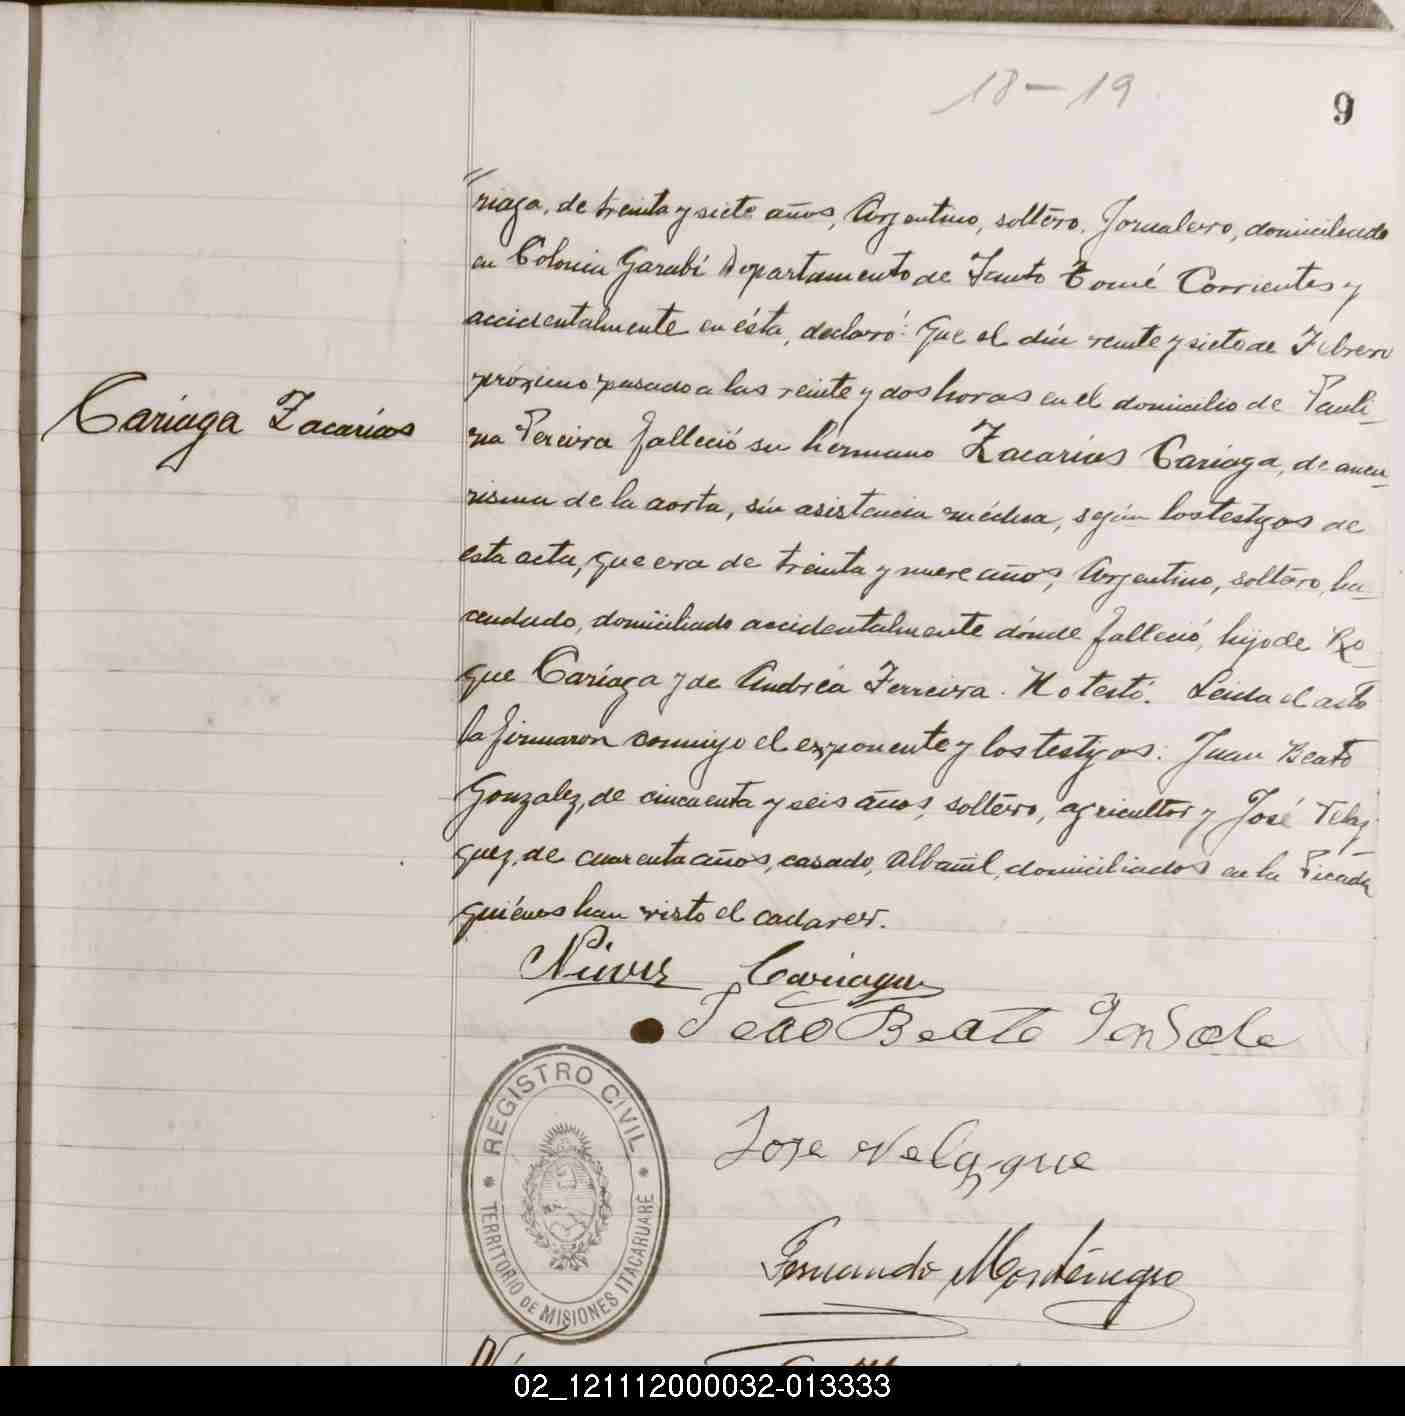 18-19
9
"riaga, de treinta y siete años, Argentino, soltero, Jornalero, domiciliado
en Colonia Garabí Departamento de Santo Tomé Corrientes y
accidentalmente en ésta, declaró: Que el día veinte y siete de Febrero
próximo pasado a las veinte y dos horas en el domicilio de Pauli-
na Pereira falleció su hermano Zacarías Cariaga, de aneu-
risma de la aorta, sin asistencia médica, según los testigos de
esta acta, que era de treinta y nueve años, Argentino, soltero, ha-
cendado, domiciliado accidentalmente dónde falleció, hijo de Ro-
que Cariaga y de Andréa Ferreira. No testó. Leida el acta
la firmaron conmigo el exponente y los testigos: Juan Beato
Gonzalez, de cincuenta y seis años, soltero, agricultor y José Velaz-
quez, de cuarenta años, casado, Albañil, domiciliados en la Picada
quiénes han visto el cadaver.
Cariaga Zacarias
Nieves Cariaga
Beato
Jose Velazque
Fernando Montenegro
REGISTRO CIVIL
TERRITORIO DE MISIONES ITACARUARÉ
02_121112000032-013333